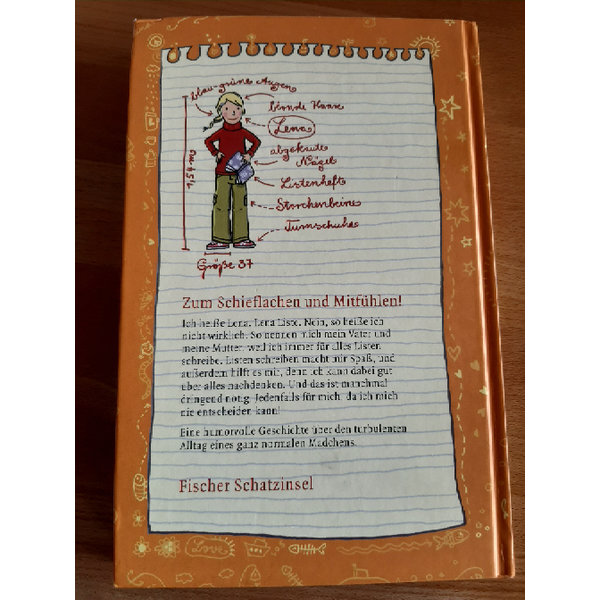 blau-grüne Augen
blonde Haare
Lena
abgekaute
Nägel
Listenheft
Storchenbeine
Turnschuhe
Größe 37
Zum Schieflachen und Mitfühlen!
Ich heiße Lena. Lena Liste. Nein, so heiße ich
nicht wirklich. So nennen mich mein Vater und
meine Mutter, weil ich immer für alles Listen
schreibe. Listen schreiben macht mir Spaß, und
außerdem hilft es mir, denn ich kann dabei gut
über alles nachdenken. Und das ist manchmal
dringend nötig. Jedenfalls für mich, da ich mich
nie entscheiden kann!
Eine humorvolle Geschichte über den turbulenten
Alltag eines ganz normalen Mädchens.
Fischer Schatzinsel
Love